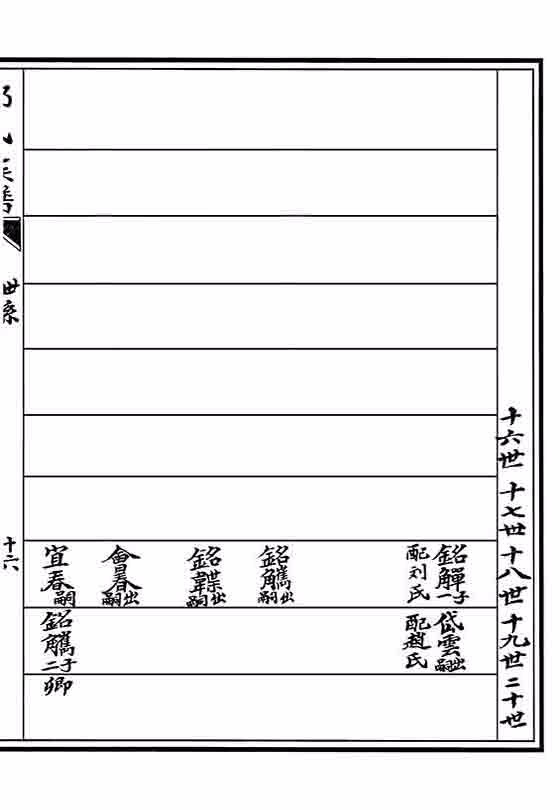 十六世
十七世
十八世
十九世
二十世
銘觶一子
配刘氏
岱雲出嗣
配趙氏
銘觿出嗣
銘韘出嗣
會春出嗣
宜春嗣
銘觿二子
卿
世系
十六